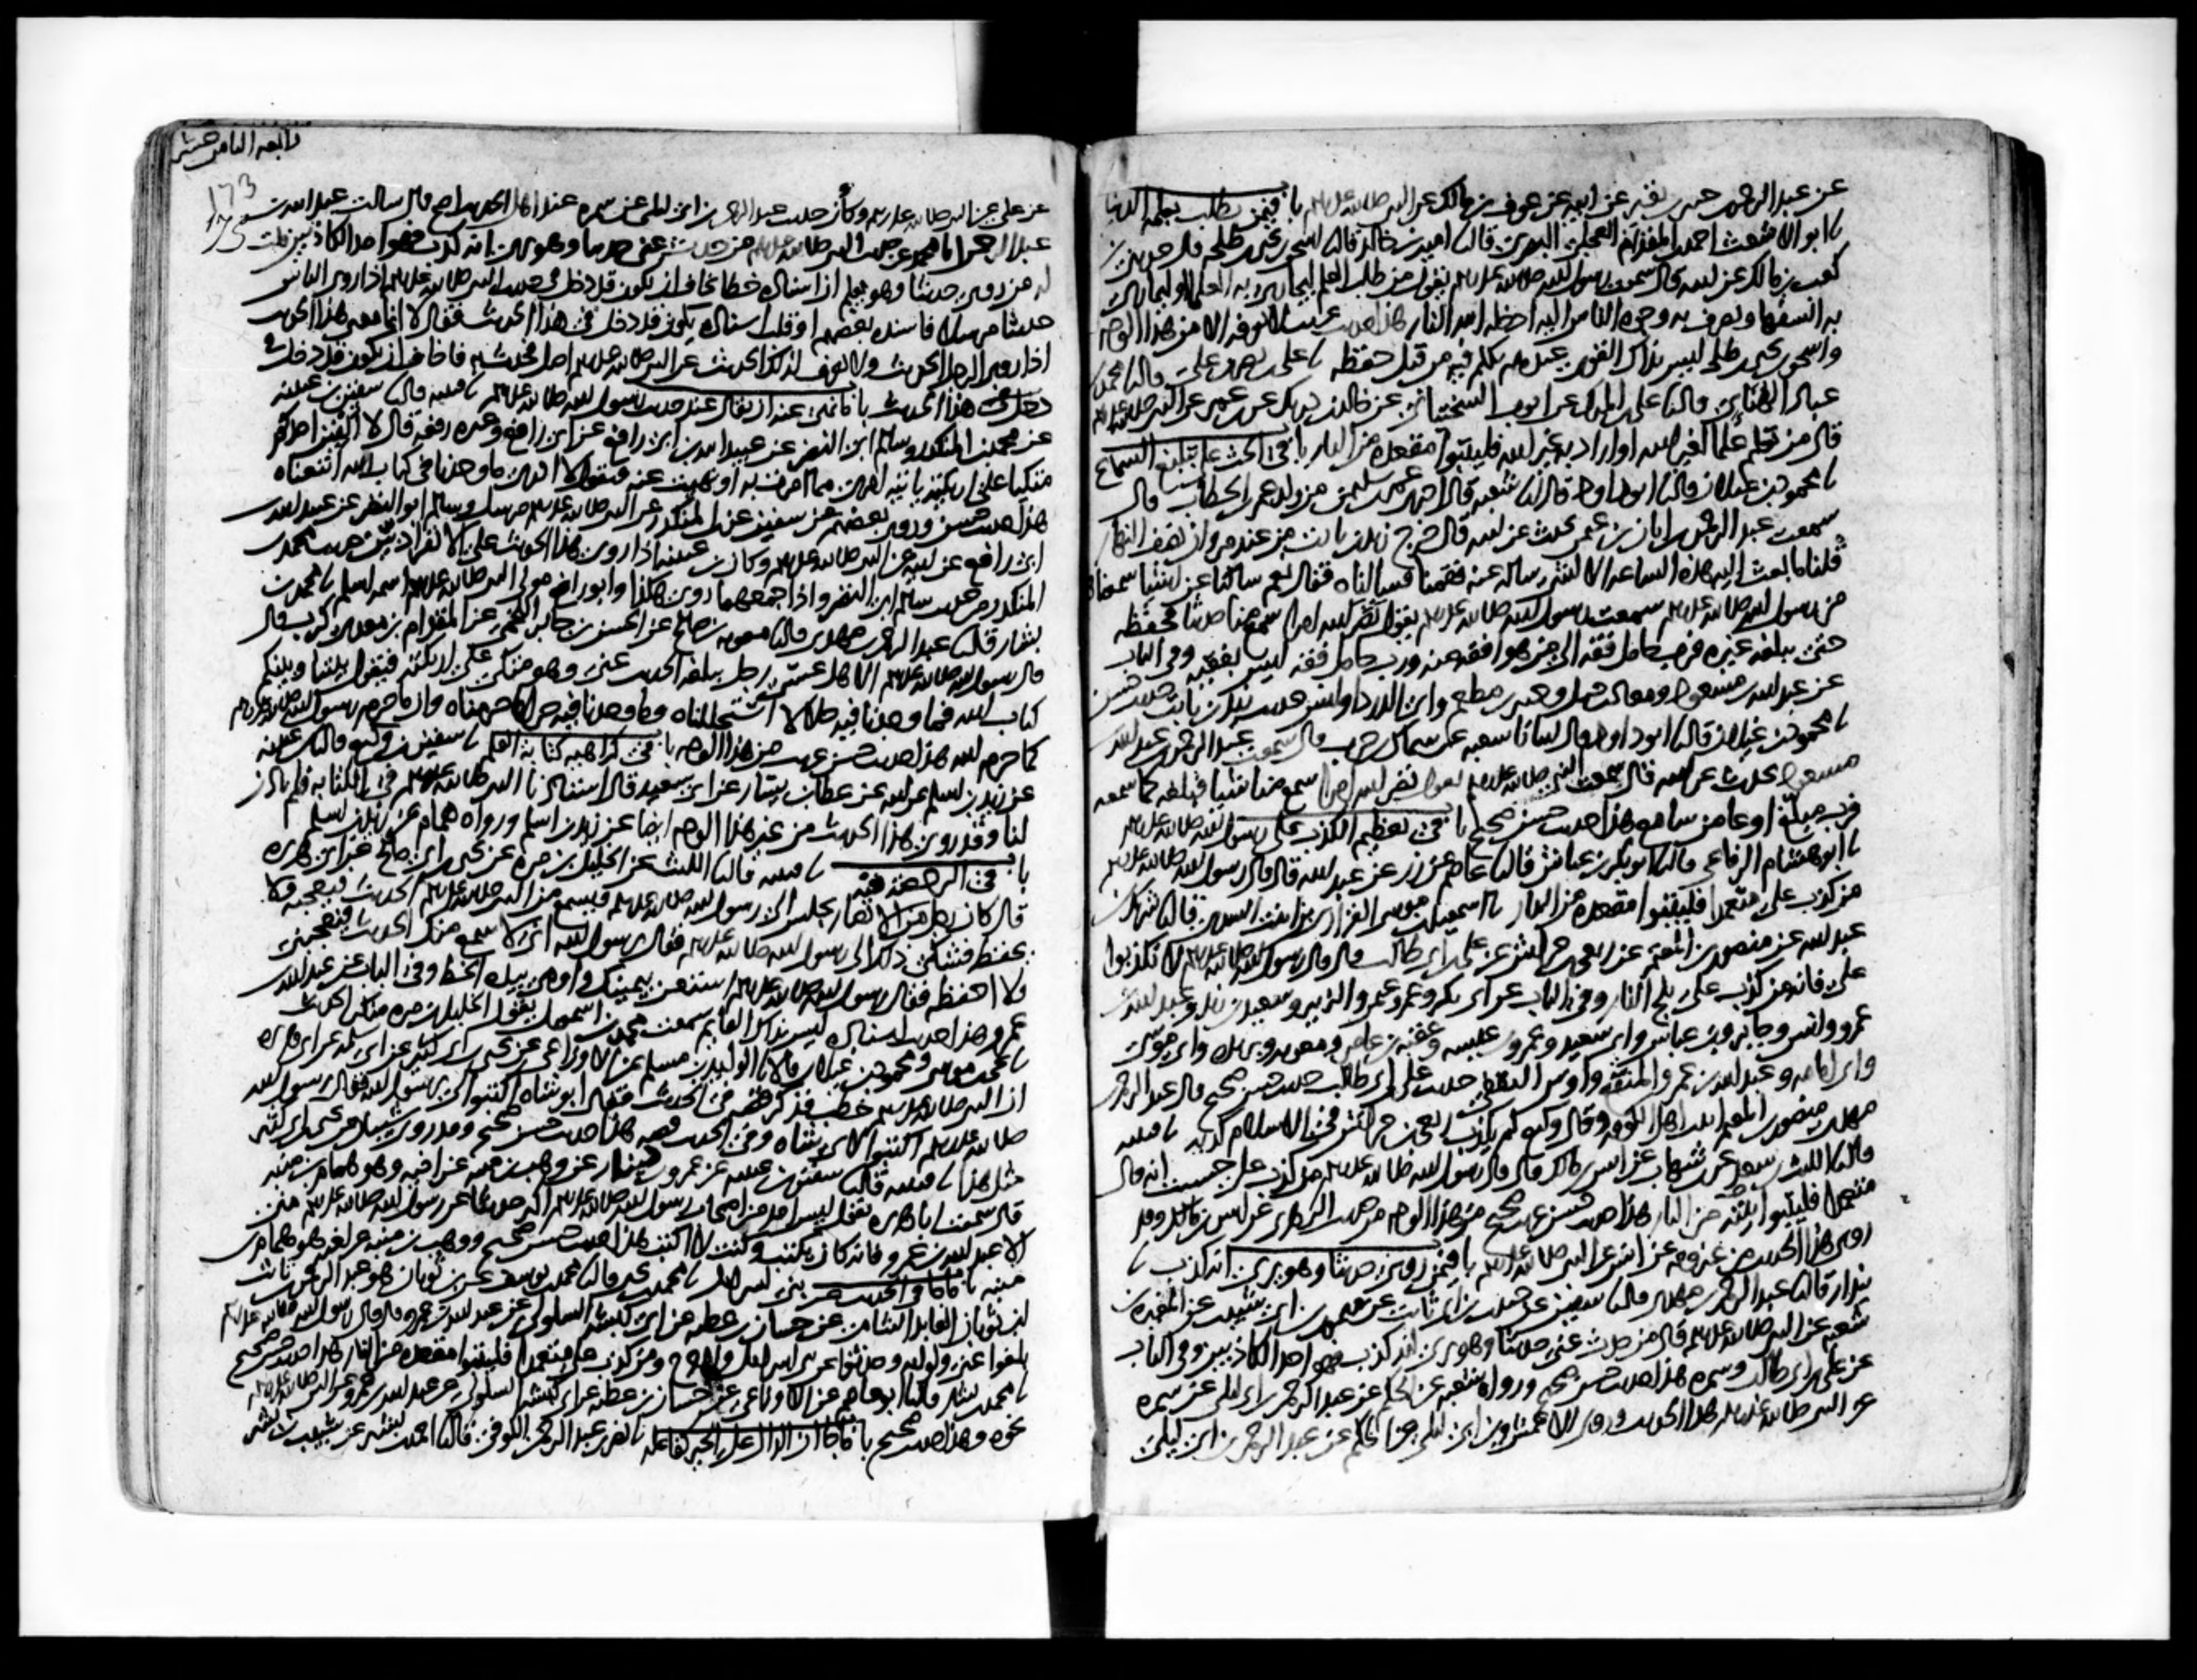 عن عبد الرحمن بن جبير بن نفير عن ابيه عن عوف بن مالك عن النبي صلى الله عليه وسلم باب فيمن يطلب بعلمه الدنيا
نا ابو الاشعث احمد بن المقدام العجلي البصري قال نا امية بن خالد قال نا اسحق بن يحيى بن طلحة قال حدثني بن
كعب بن مالك عن ابيه قال سمعت رسول الله صلى الله عليه وسلم يقول من طلب العلم ليجاري به العلما او ليماري
به السفها ويصرف به وجوه الناس اليه ادخله الله النار هذا حديث غريب لا نعرفه الا من هذا الوجه
واسحق بن يحيى بن طلحة ليس بذاك القوي عندهم تكلم فيه من قبل حفظه نا علي بن نصر بن علي قال نا محمد بن
عباد الهنائي قال نا علي بن المبارك عن ايوب السختياني عن خالد بن دريك عن بن عمر عن النبي صلى الله عليه وسلم
قال من تعلم علما لغير الله او اراد به غير الله فليتبوا مقعده من النار باب في الحث على تبليغ السماع
نا محمود بن غيلان قال نا ابو داود قال انا شعبة قال اخبرني عمر بن سليمن من ولد عمر بن الخطاب قال
سمعت عبد الرحمن بن ابان بن عثمن يحدث عن ابيه قال خرج زيد بن ثابت من عند مروان نصف النهار
قلنا ما بعث اليه هذه الساعة الا لشي ساله عنه فقمنا فسالناه فقال نعم سالنا عن اشيا سمعناها
من رسول الله صلى الله عليه وسلم سمعت رسول الله صلى الله عليه وسلم يقول نضر الله امرا سمع منا حديثا فحفظه
حتى يبلغه غيره فرب حامل فقه الى من هو افقه منه ورب حامل فقه ليس بفقيه وفي الباب
عن عبد الله بن مسعود ومعاذ بن جبل وجبير بن مطعم وابي الدردا وانس حديث زيد بن ثابت حديث حسن
نا محمود بن غيلان قال نا ابو داود قال انبانا شعبة عن سماك بن حرب قال سمعت عبد الرحمن بن عبد الله
بن مسعود يحدث عن ابيه قال سمعت النبي صلى الله عليه وسلم يقول نضر الله امرا سمع منا شيا فبلغه كما سمعه
فرب مبلغ اوعا من سامع هذا حديث حسن صحيح باب في تعظيم الكذب على رسول الله صلى الله عليه وسلم
نا ابو هشام الرفاعي قال نا ابو بكر بن عياش قال نا عاصم عن زر عن عبد الله قال قال رسول الله صلى الله عليه وسلم
من كذب علي متعمدا فليتبوا مقعده من النار نا اسمعيل بن موسى الفزاري بن ابنت السدي قال نا شريك بن
عبد الله عن منصور بن المعتمر عن ربعي بن حراش عن علي بن ابي طالب قال قال رسول الله صلى الله عليه وسلم لا تكذبوا
علي فانه من كذب علي يلج النار وفي الباب عن ابي بكر وعمر وعثمن والزبير وسعيد بن زيد وعبد الله بن
عمرو وانس وجابر وبن عباس وابي سعيد وعمرو بن عبسة وعقبة بن عامر ومعوية وبريدة وابي موسى
وابي امامة وعبد الله بن عمر والمنقع واوس الثقفي حديث علي بن ابي طالب حديث حسن صحيح قال عبد الرحمن بن
مهدي منصور بن المعتمر اثبت اهل الكوفة وقال وكيع لم يكذب ربعي بن حراش في الاسلام كذبة نا قتيبة
قال نا الليث بن سعد عن بن شهاب عن انس بن مالك قال قال رسول الله صلى الله عليه وسلم من كذب علي حسبت انه قال
متعمدا فليتبوا بيته من النار هذا حديث حسن غريب صحيح من هذا الوجه من حديث الزهري عن انس بن مالك وقد
روي هذا الحديث من غير وجه عن انس عن النبي صلى الله عليه وسلم باب فيمن روى حديثا وهو يرى انه كذب نا
بندار قال نا عبد الرحمن بن مهدي قال نا سفين عن حبيب بن ابي ثابت عن ميمون بن ابي شبيب عن المغيرة بن
شعبة عن النبي صلى الله عليه وسلم قال من حدث عني حديثا وهو يرى انه كذب فهو احد الكاذبين وفي الباب
عن علي بن ابي طالب وسمرة هذا حديث حسن صحيح وروى شعبة عن الحكم عن عبد الرحمن بن ابي ليلى عن سمرة
عن النبي صلى الله عليه وسلم هذا الحديث وروى الاعمش وبن ابي ليلى عن الحكم عن عبد الرحمن بن ابي ليلى
تابعه الثامن عشر
173
عن علي عن النبي صلى الله عليه وسلم وكان حديث عبد الرحمن بن ابي ليلى عن سمرة عند اهل الحديث اصح قال سالت عبد الله بن
عبد الرحمن ابا محمد عن حديث النبي صلى الله عليه وسلم من حدث عني حديثا وهو يرى انه كذب فهو احد الكاذبين قلت
له من روى حديثا وهو يعلم ان اسناده خطا يخاف ان يكون قد دخل في حديث النبي صلى الله عليه وسلم او اذا روى الناس
حديثا مرسلا فاسنده بعضهم او قلب اسناده يكون قد دخل في هذا الحديث فقال لا انما معنى هذا الحديث
اذا روى الرجل الحديث ولا يعرف لذلك الحديث عن النبي صلى الله عليه وسلم اصل فحدث به فاخاف ان يكون قد دخل في
هذا الحديث باب ما نهي عنه ان يقال عند حديث رسول الله صلى الله عليه وسلم نا قتيبة قال نا سفين بن عيينة
عن محمد بن المنكدر وسالم ابي النضر عن عبيد الله بن ابي رافع عن ابي رافع وغيره رفعه قال لا الفين احدكم
متكيا على اريكته ياتيه امر مما امرت به او نهيت عنه فيقول لا ادري ما وجدنا في كتاب الله اتبعناه
هذا حديث حسن وروى بعضهم عن سفين عن بن المنكدر عن النبي صلى الله عليه وسلم مرسل وسالم ابي النضر عن عبيد الله بن
ابي رافع عن ابيه عن النبي صلى الله عليه وسلم وكان بن عيينة اذا روى هذا الحديث على الانفراد بين حديث محمد بن
المنكدر من حديث سالم ابي النضر واذا جمعهما روى هكذا وابو رافع مولى النبي صلى الله عليه وسلم اسمه اسلم نا محمد بن
بشار قال نا عبد الرحمن بن مهدي قال نا معوية بن صالح عن الحسن بن جابر اللخمي عن المقدام بن معدي كرب قال
قال رسول الله صلى الله عليه وسلم الا هل عسى رجل يبلغه الحديث عني وهو متكي على اريكته فيقول بيننا وبينكم
كتاب الله فما وجدنا فيه حلالا استحللناه وما وجدنا فيه حراما حرمناه وان ما حرم رسول الله صلى الله عليه وسلم
كما حرم الله هذا حديث حسن غريب من هذا الوجه باب في كراهية كتابة العلم نا سفين بن وكيع قال نا بن عيينة
عن زيد بن اسلم عن ابيه عن عطا بن يسار عن ابي سعيد قال استاذنا النبي صلى الله عليه وسلم في الكتابة فلم ياذن
لنا وقد روي هذا الحديث من غير هذا الوجه ايضا عن زيد بن اسلم ورواه همام عن زيد بن اسلم
باب في الرخصة فيه نا قتيبة قال نا الليث عن الخليل بن مرة عن يحيى بن ابي صالح عن ابي هريرة
قال كان رجل من الانصار يجلس الى رسول الله صلى الله عليه وسلم فيسمع من النبي صلى الله عليه وسلم الحديث فيعجبه ولا
يحفظه فشكى ذلك الى رسول الله صلى الله عليه وسلم فقال يرسول الله اني لاسمع منك الحديث فيعجبني
ولا احفظه فقال رسول الله صلى الله عليه وسلم استعن بيمينك واومى بيده الخط وفي الباب عن عبد الله بن
عمرو هذا حديث اسناده ليس بذاك القايم سمعت محمد بن اسمعيل يقول الخليل بن مرة منكر الحديث
نا يحيى بن موسى ومحمود بن غيلان قالا نا الوليد بن مسلم عن الاوزاعي عن يحيى بن ابي كثير عن ابي سلمة عن ابي هريرة
ان النبي صلى الله عليه وسلم خطب فذكر قصة في الحديث فقال ابو شاه اكتبوا لي يرسول الله فقال رسول الله
صلى الله عليه وسلم اكتبوا لابي شاه وفي الحديث قصة هذا حديث حسن صحيح وقد روى شيبان عن يحيى بن ابي كثير
مثل هذا نا قتيبة قال نا سفين بن عيينة عن عمرو بن دينار عن وهب بن منبه عن اخيه وهو همام بن منبه
قال سمعت ابا هريرة يقول ليس احد من اصحاب رسول الله صلى الله عليه وسلم اكثر حديثا عن رسول الله صلى الله عليه وسلم مني
الا عبد الله بن عمرو فانه كان يكتب وكنت لا اكتب هذا حديث حسن صحيح ووهب بن منبه عن اخيه هو همام بن
منبه باب ما جا في الحديث عن بني اسرائيل نا محمد بن يحيى قال نا محمد بن يوسف عن بن ثوبان هو عبد الرحمن بن ثابت
بن ثوبان العابد الشامي عن حسان بن عطية عن ابي كبشة السلولي عن عبد الله بن عمرو قال قال رسول الله صلى الله عليه وسلم
بلغوا عني ولو اية وحدثوا عن بني اسرائيل ولا حرج ومن كذب علي متعمدا فليتبوا مقعده من النار هذا حديث حسن صحيح
نا محمد بن بشار قال نا ابو عاصم عن الاوزاعي عن حسان بن عطية عن ابي كبشة السلولي عن عبد الله بن عمرو عن النبي صلى الله عليه وسلم
نحوه وهذا حديث صحيح باب ما جا ان الدال على الخير كفاعله نا نصر بن عبد الرحمن الكوفي قال نا احمد بن بشير عن شبيب بن بشر